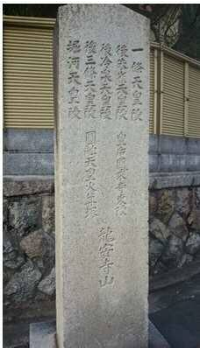 一條天皇陵
後朱雀天皇陵
後冷泉天皇陵
後三條天皇陵
堀河天皇陵
圓融天皇火葬塚
龍安寺山